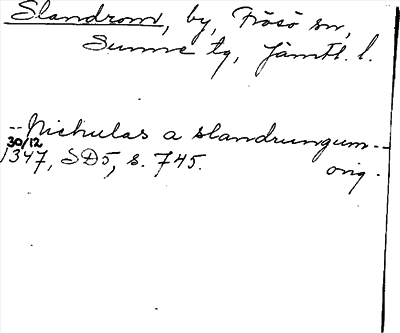 Slandrom, by, Frösö sn,
Sunne tg, Jämtl. l.
-- Nichulas a slandrungum --
30/12
1347, SD5, s. 745. orig.